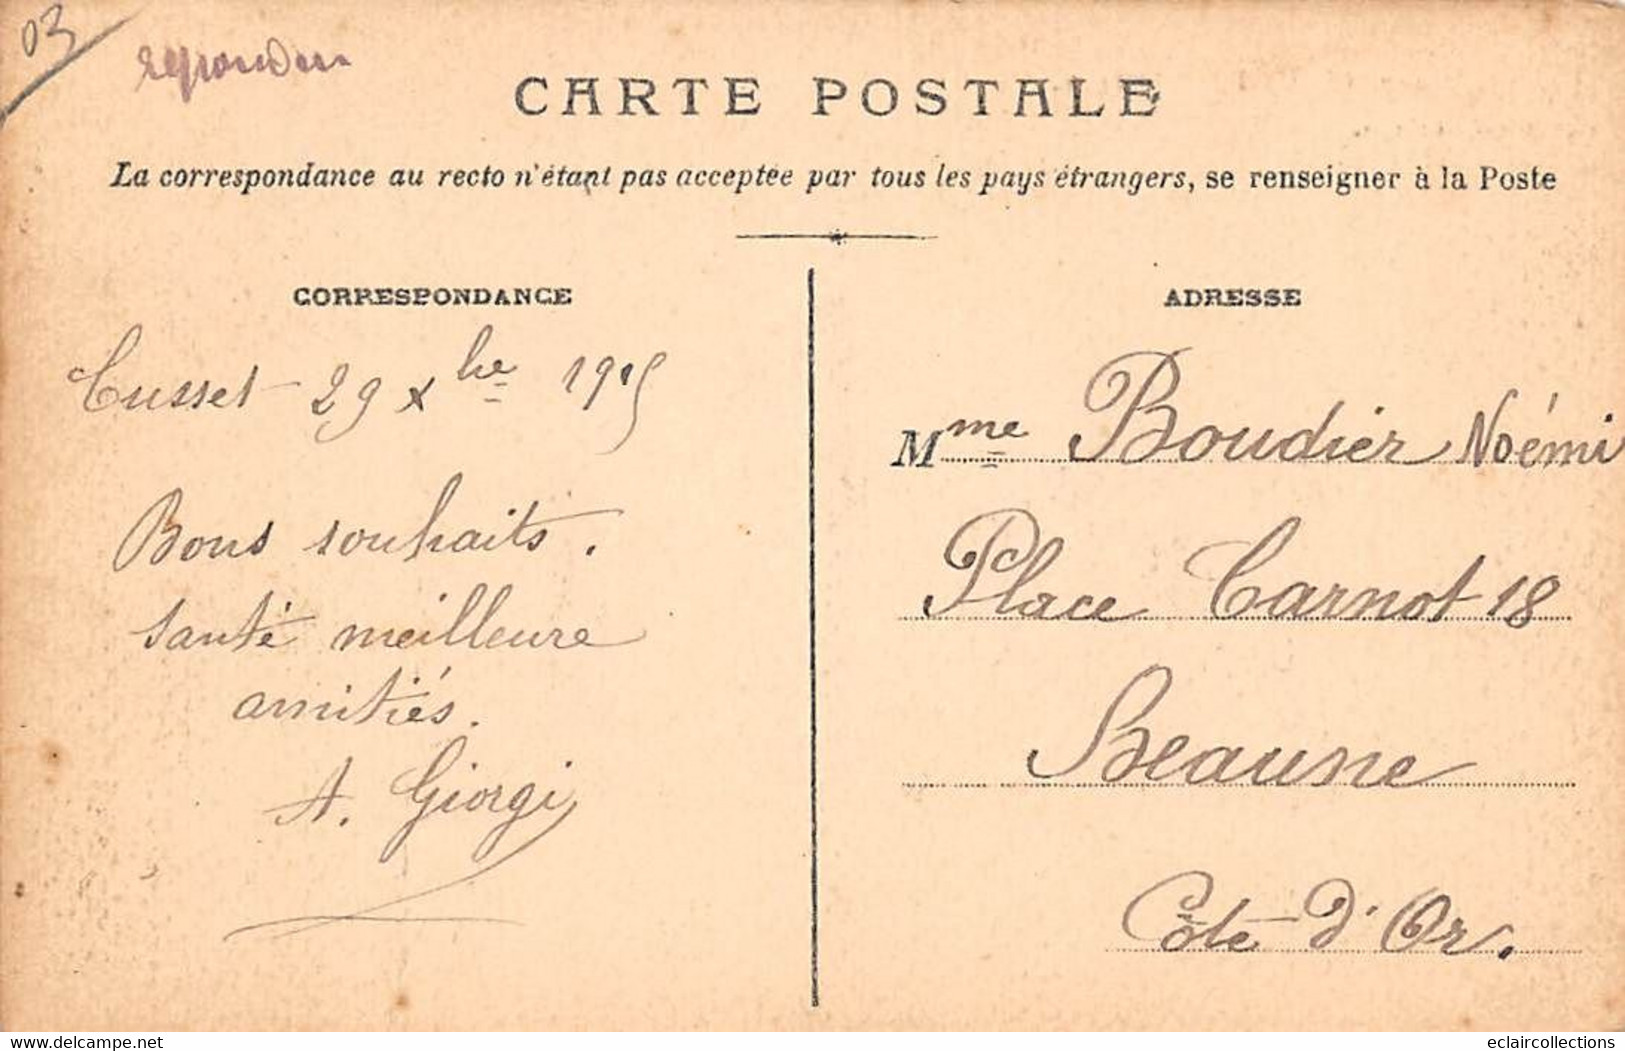 03
repondu
CARTE POSTALE
La correspondance au recto n'étant pas acceptée par tous les pays étrangers, se renseigner à la Poste
CORRESPONDANCE
Cusset 29 xbre 1915
Bons souhaits.
santé meilleure
amitiés.
A. Giorgi
ADRESSE
Mme Boudier Noémi
Place Carnot 18
Beaune
Côte d'Or.
delcampe.net
eclaircollections